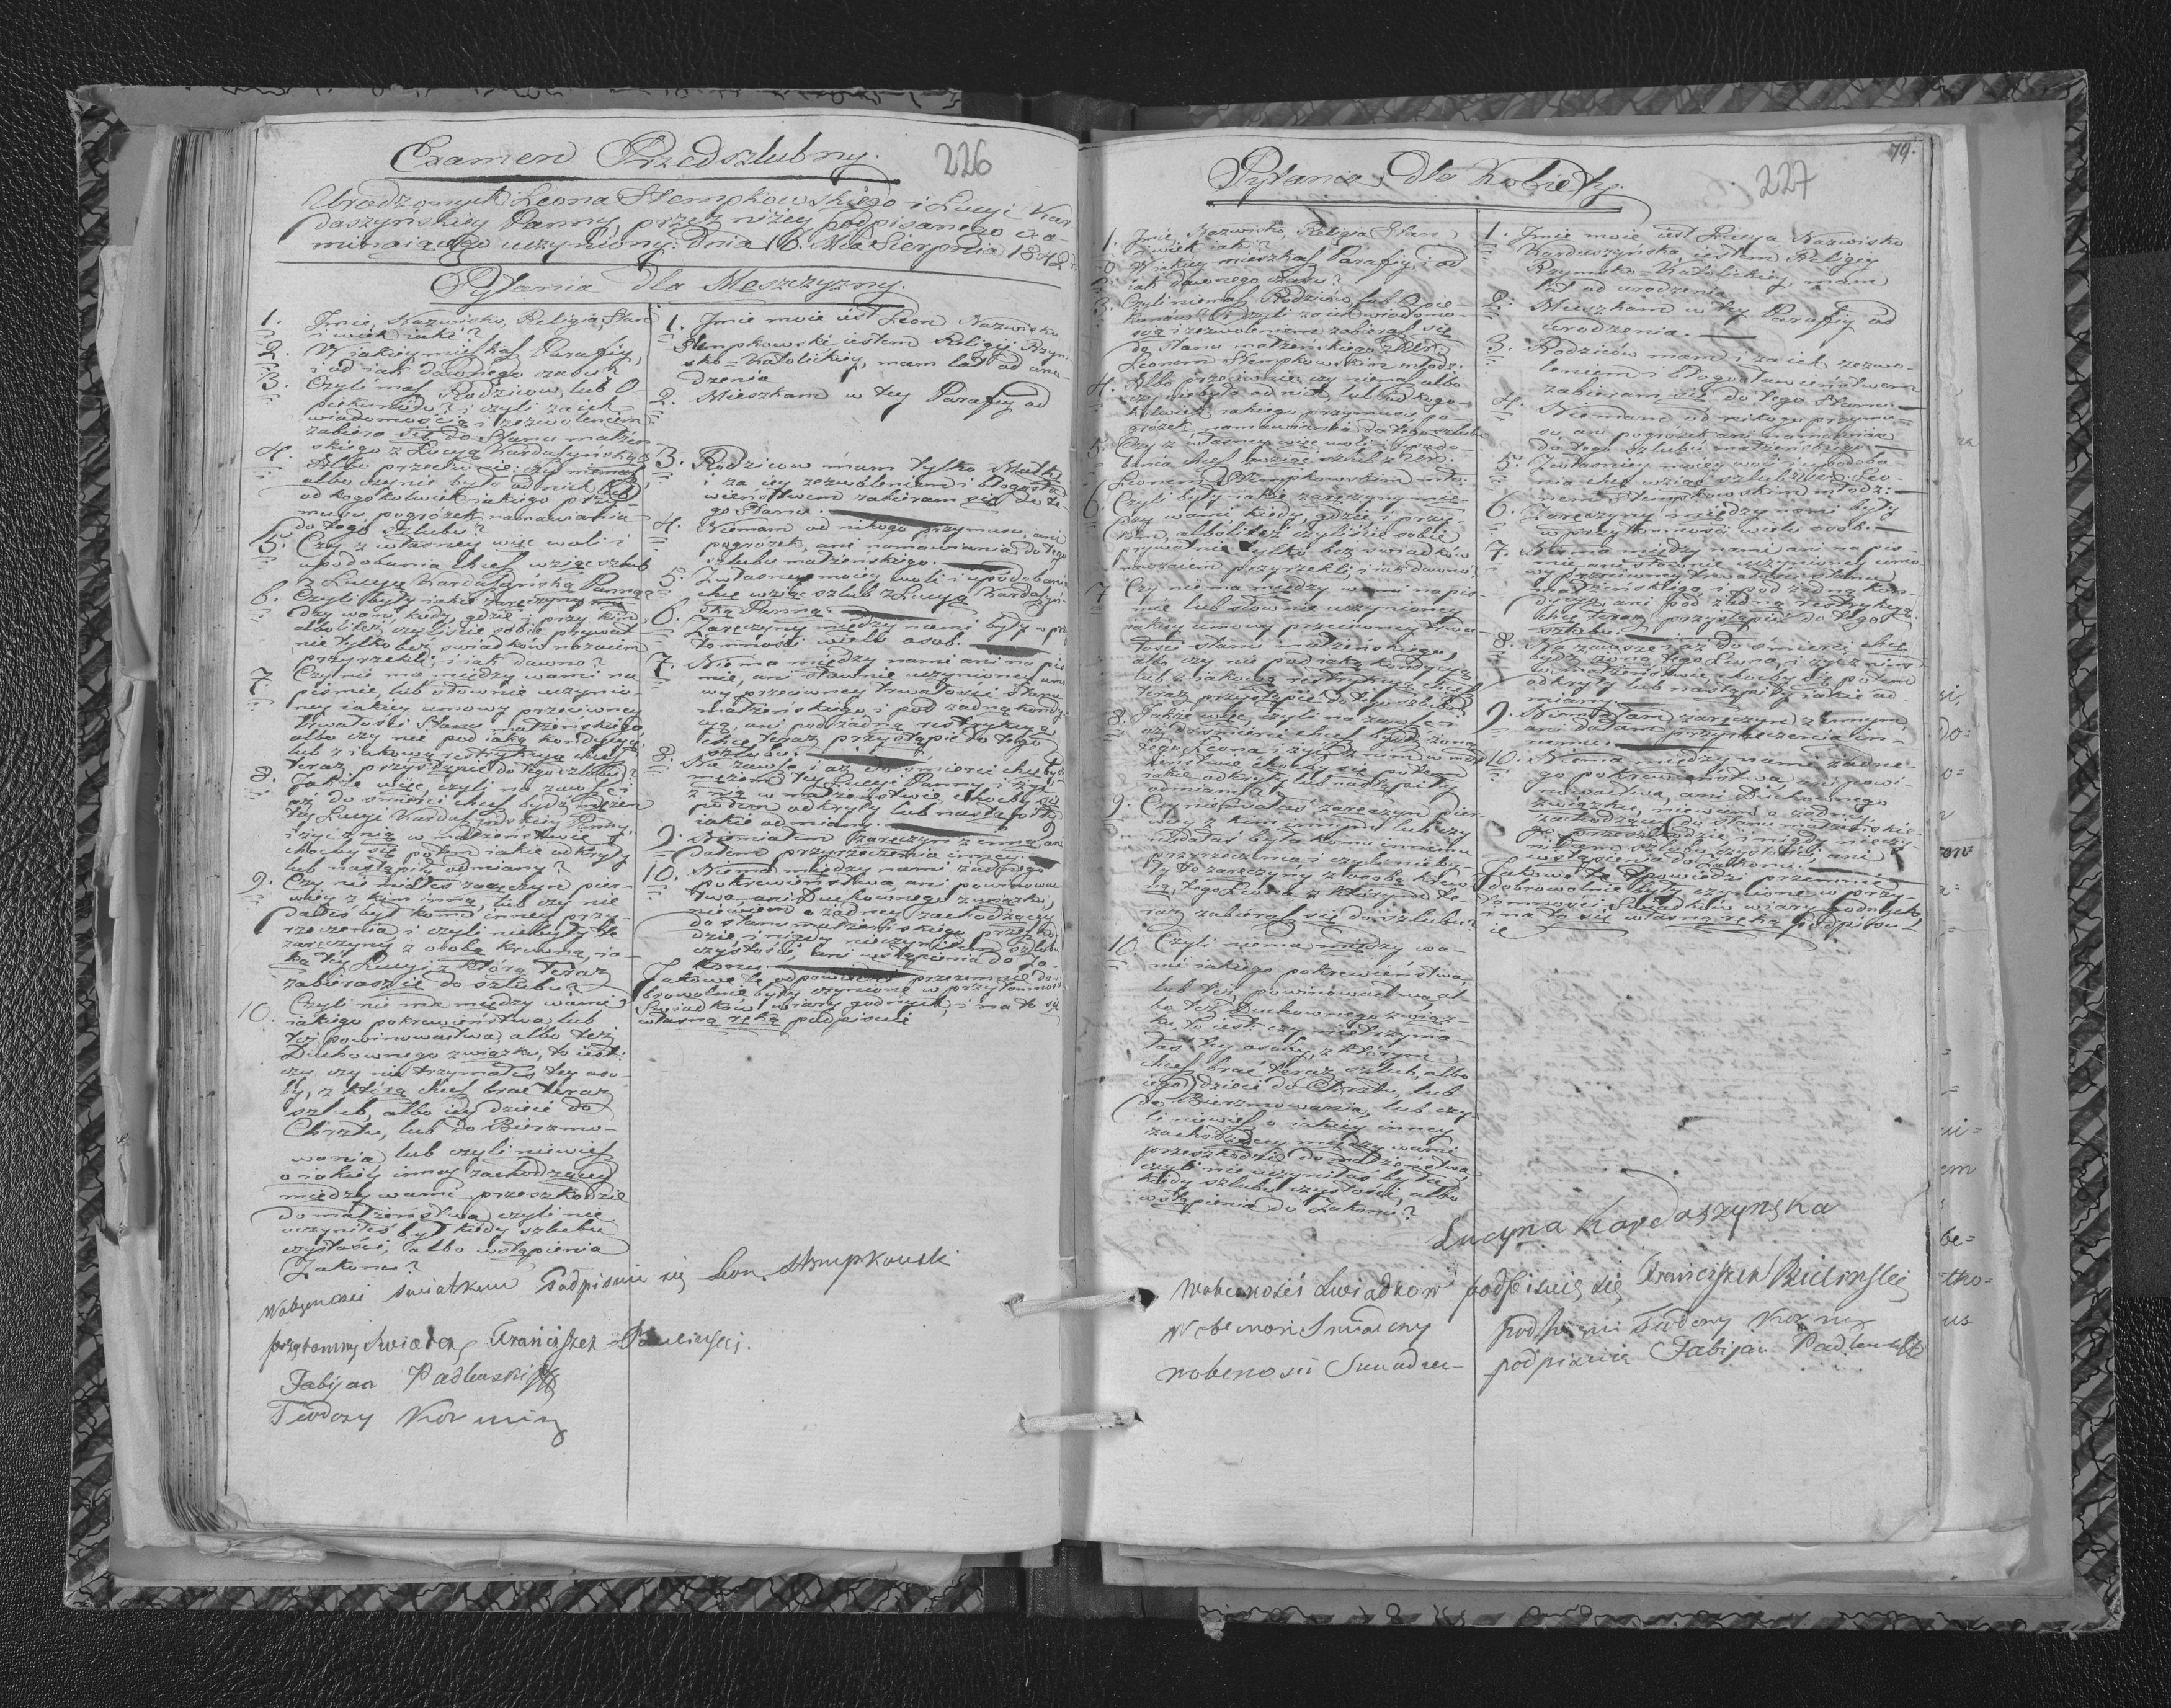 Examen Przedszlubny.
226
Urodzonych Leona Stempkowskiego i Lucyi Kar
daszyńskiey Panny, przez niżey podpisanego exa-
minuiącego uczyniony: dnia 16. Mca Sierpnia 1842
Pytania dla Męszczyzny.
1. Jmie, Nazwisko, Religia, Stan
i wiek iaki?
2. W iakiey mieszkasz Parafiy,
i od iak dawnego czasu?
3. Czyli masz Rodziców, lub O-
piekunów? i czyli za ich
wiadomością i zezwoleniem
zabierasz się do Stanu małżeń
skiego z Lucyą Kardaszyńską
4. Albo przeciwnie: czy niemasz
albo czy nie było od nich lub
od kogokolwiek iakiego przy-
musu, pogróżek, namawiania
do tego szlubu?
5. Czy z własney więc woli i
upodobania chcesz wziąć szlub
z Lucyą Kardaszyńską Panną?
6. Czyli były iakie zaręczyny mię
dzy wami, kiedy, gdzie i przy kim
albo liteż czyliście sobie prywat
nie tylko bez swiadków nazaiem
przyrzekli, i iak dawno?
7. Czyli nie ma między wami na
piśmie, lub słownie uczynio-
ney iakiey umowy przeciwney
trwałości Stanu małżeńskiego,
albo czy nie pod iaką kondycyą,
lub z iakową restrykcyą chcesz
teraz przystąpić do tego szlubu?
8. Jakże więc, czyli na zawsze i
aż do śmierci chcesz bydź mężem
tey Lucyi Kardaszyńskiey Panny,
i żyć z nią w małżeństwie,
choćby się potem iakie odkryły
lub nastąpiły odmiany?
9. Czy nie miałeś zaręczyn pier-
wiey z kim inną, lub czy nie
dałeś był komu inney przy-
rzeczenia i czyli nie były te
zaręczyny z osobą krewną ia-
ką tey Lucyi z którą teraz
zabierasz się do szlubu?
10. Czyli nie ma między wami
iakiego pokrewieństwa lub
też powinowactwa, albo też
Duchownego związku, to iest:
czy, czy nie trzymałeś tey oso-
by, z którą chcesz brać teraz
szlub, albo iey dzieci do
Chrztu, lub do Bierzmo-
wania, lub czyli niewiesz
o iakiey inney zachodzącey
między wami przeszkodzie
do małżeństwa, czyli nie
uczyniłeś był kiedy szlubu
czystości, albo wstąpienia
Zakonu?
1. Jmie moie iest Leon Nazwisko
Stempkowski iestem Religij Rzym
sko-Katolickiey, mam lat od uro-
dzenia
2. Mieszkam w tey Parafiy od
3. Rodziców mam tylko Matkę
i za iey zezwoleniem i błogosła
wieństwem zabieram się do te-
go Stanu.
4. Niemam od nikogo przymusu, ani
pogróżek, ani namawiania do tego
szlubu małżeńskiego.
5. Z własney moiey woli i upodobania
chcę wziąć szlub z Lucyą Kardaszyń-
ską Panną.
6. Zaręczyny między nami były w przy
tomności wielu osób.
7. Niema między nami ani na piś
mie, ani słownie uczynioney umo
wy przeciwney trwałości Stanu
małżeńskiego, i pod żadną kondy-
cyą, ani pod żadną restrykcyą
chcę teraz przystąpić do tego
szlubu.
8. Na zawsze i aż do śmierci chcę być
mężem tey Lucyi Panny i żyć
z nią w małżeństwie, choćby się
potem odkryły lub nastąpiły
iakie odmiany.
9. Niemiałem zaręczyn z inną ani
dałem przyrzeczenia inney.
10. Niema między nami żadnego
pokrewieństwa ani powinowac
twa, ani Duchownego związku,
niewiem o żadney zachodzącey
do stanu małżeńskiego przeszko
dzie i nigdy nieczyniłem szlubu
czystości, ani wstąpienia do Za-
konu.
Jakowe te odpowiedzi przezemnie do-
browolnie były czynione w przytomnoś
Świadków wiary godnych, i na to się
własną ręką podpisuię
Wobecnosci swiatkuw Podpisuie się Leon Stempkowski
przytomny Swiadek Franciszek Bulinski.
Fabijan Padlewski
Teodozy
79.
Pytania dla Kobiety.
227
1. Jmie, Nazwisko, Religia, Stan
i wiek iaki?
2. W iakiey mieszkasz Parafiy, i od
iak dawnego czasu?
3. Czyli niemasz Rodziców, lub Opie-
kunów? i czyli za ich wiadomo-
scią i zezwoleniem zabierasz się
do Stanu małżeńskiego z Ur:
Leonem Stempkowskim młodz:
4. Albo przeciwnie, czy niemasz albo
czy nie było od nich, lub od kogo-
kolwiek iakiego przymusu, po-
gróżek, namawiania do tego szlubu
5. Czy z własney więc woli i upodo-
bania chcesz wziąć szlub z Ur:
Leonem Stempkowskim mło:
6. Czyli były iakie zaręczyny mię-
dzy wami kiedy, gdzie i przy-
kim, albo liteż czyliście sobie
prywatnie tylko bez swiadków
nazaiem przyrzekli, i iak dawno?
7. Czy niema między wami na piś-
mie lub słownie uczynioney
iakiey umowy przeciwney trwa-
łości stanu małżeńskiego,
albo czy nie pod iaką kondycyą
lub z iakową restrykcyą chcesz
teraz przystąpić do tego szlubu?
8. Jakże więc, czyli na zawsze i
aż do śmierci chcesz bydź żoną
tego Leona i żyć z nim w mał
żeństwie choćby się potem
iakie odkryły lub nastąpiły
odmiany?
9. Czy nie miałaś zaręczyn pier-
wiey z kim innym lub czy
niedałaś była komu innemu
przyrzeczenia, i czyli nieby-
ły te zaręczyny z osobą krew-
ną tego Leona z którym te-
raz zabierasz się do szlubu?
10. Czyli niema między wa-
mi iakiego pokrewieństwa,
lub też powinowactwa, al
bo też Duchownego związ-
ku, to iest: czy nie trzyma-
łaś tey osoby, z którym
chcesz brać teraz szlub, albo
iego dzieci do Chrztu, lub
do Bierzmowania, lub czy-
li niewiesz o iakiey inney
zachodzącey między wami
przeszkodzie do małżeństwa,
czyli nie uczyniłaś była
kiedy szlubu czystości, albo
wstąpienia do Zakonu?
1. Jmie moie iest Lucya Nazwisko
Kardaszyńska, iestem Religiey
Rzymsko-Katolickiey, mam
lat od urodzenia
2. Mieszkam w tey Parafiy od
urodzenia.
3. Rodziców mam i za ich zezwo-
leniem i błogosławieństwem
zabieram się do tego Stanu.
4. Niemam od nikogo przymu-
su, ani pogróżek, ani namawiania
do tego szlubu małżeńskiego.
5. Z własney moiey woli i upodoba-
nia chcę wziąć szlub z Ur: Leo-
nem Stempkowskim młodz:
6. Zaręczyny między nami były
w przytomności wielu osób.
7. Niema między nami ani na piś-
mie ani słownie uczynioney umo
wy przeciwney trwałości stanu
małżeńskiego, i pod żadną kon-
dycyą, ani pod żadną restrykcyą
chcę teraz przystąpić do tego
szlubu.
8. Na zawsze i aż do śmierci chcę
bydź żoną tego Leona, i żyć z nim
w małżeństwie, choćby się potem
odkryły lub nastąpiły iakie od
miany.
9. Niemiałam zaręczyn z innym,
ani dałam przyrzeczenia in-
nemu.
10. Niema między nami żadne-
go pokrewieństwa, ani powi-
nowactwa, ani Duchownego
związku, niewiem o żadney
zachodzącey do stanu małżeńskie-
go przeszkodzie i nigdy nieczy-
niłam szlubu czystości, ani
wstąpienia do Zakonu.
Jakowe te odpowiedzi przezemnie
dobrowolnie były czynione w przy-
tomności Swiadków wiary godnych,
i na to się własną ręką podpisu-
ię
Lucyna Kardaszynska
Wobecności Swiadkow podpisuię się Franciszek Bulinski
podpisuie Teodozy
podpisuię Fabijan Padlewski